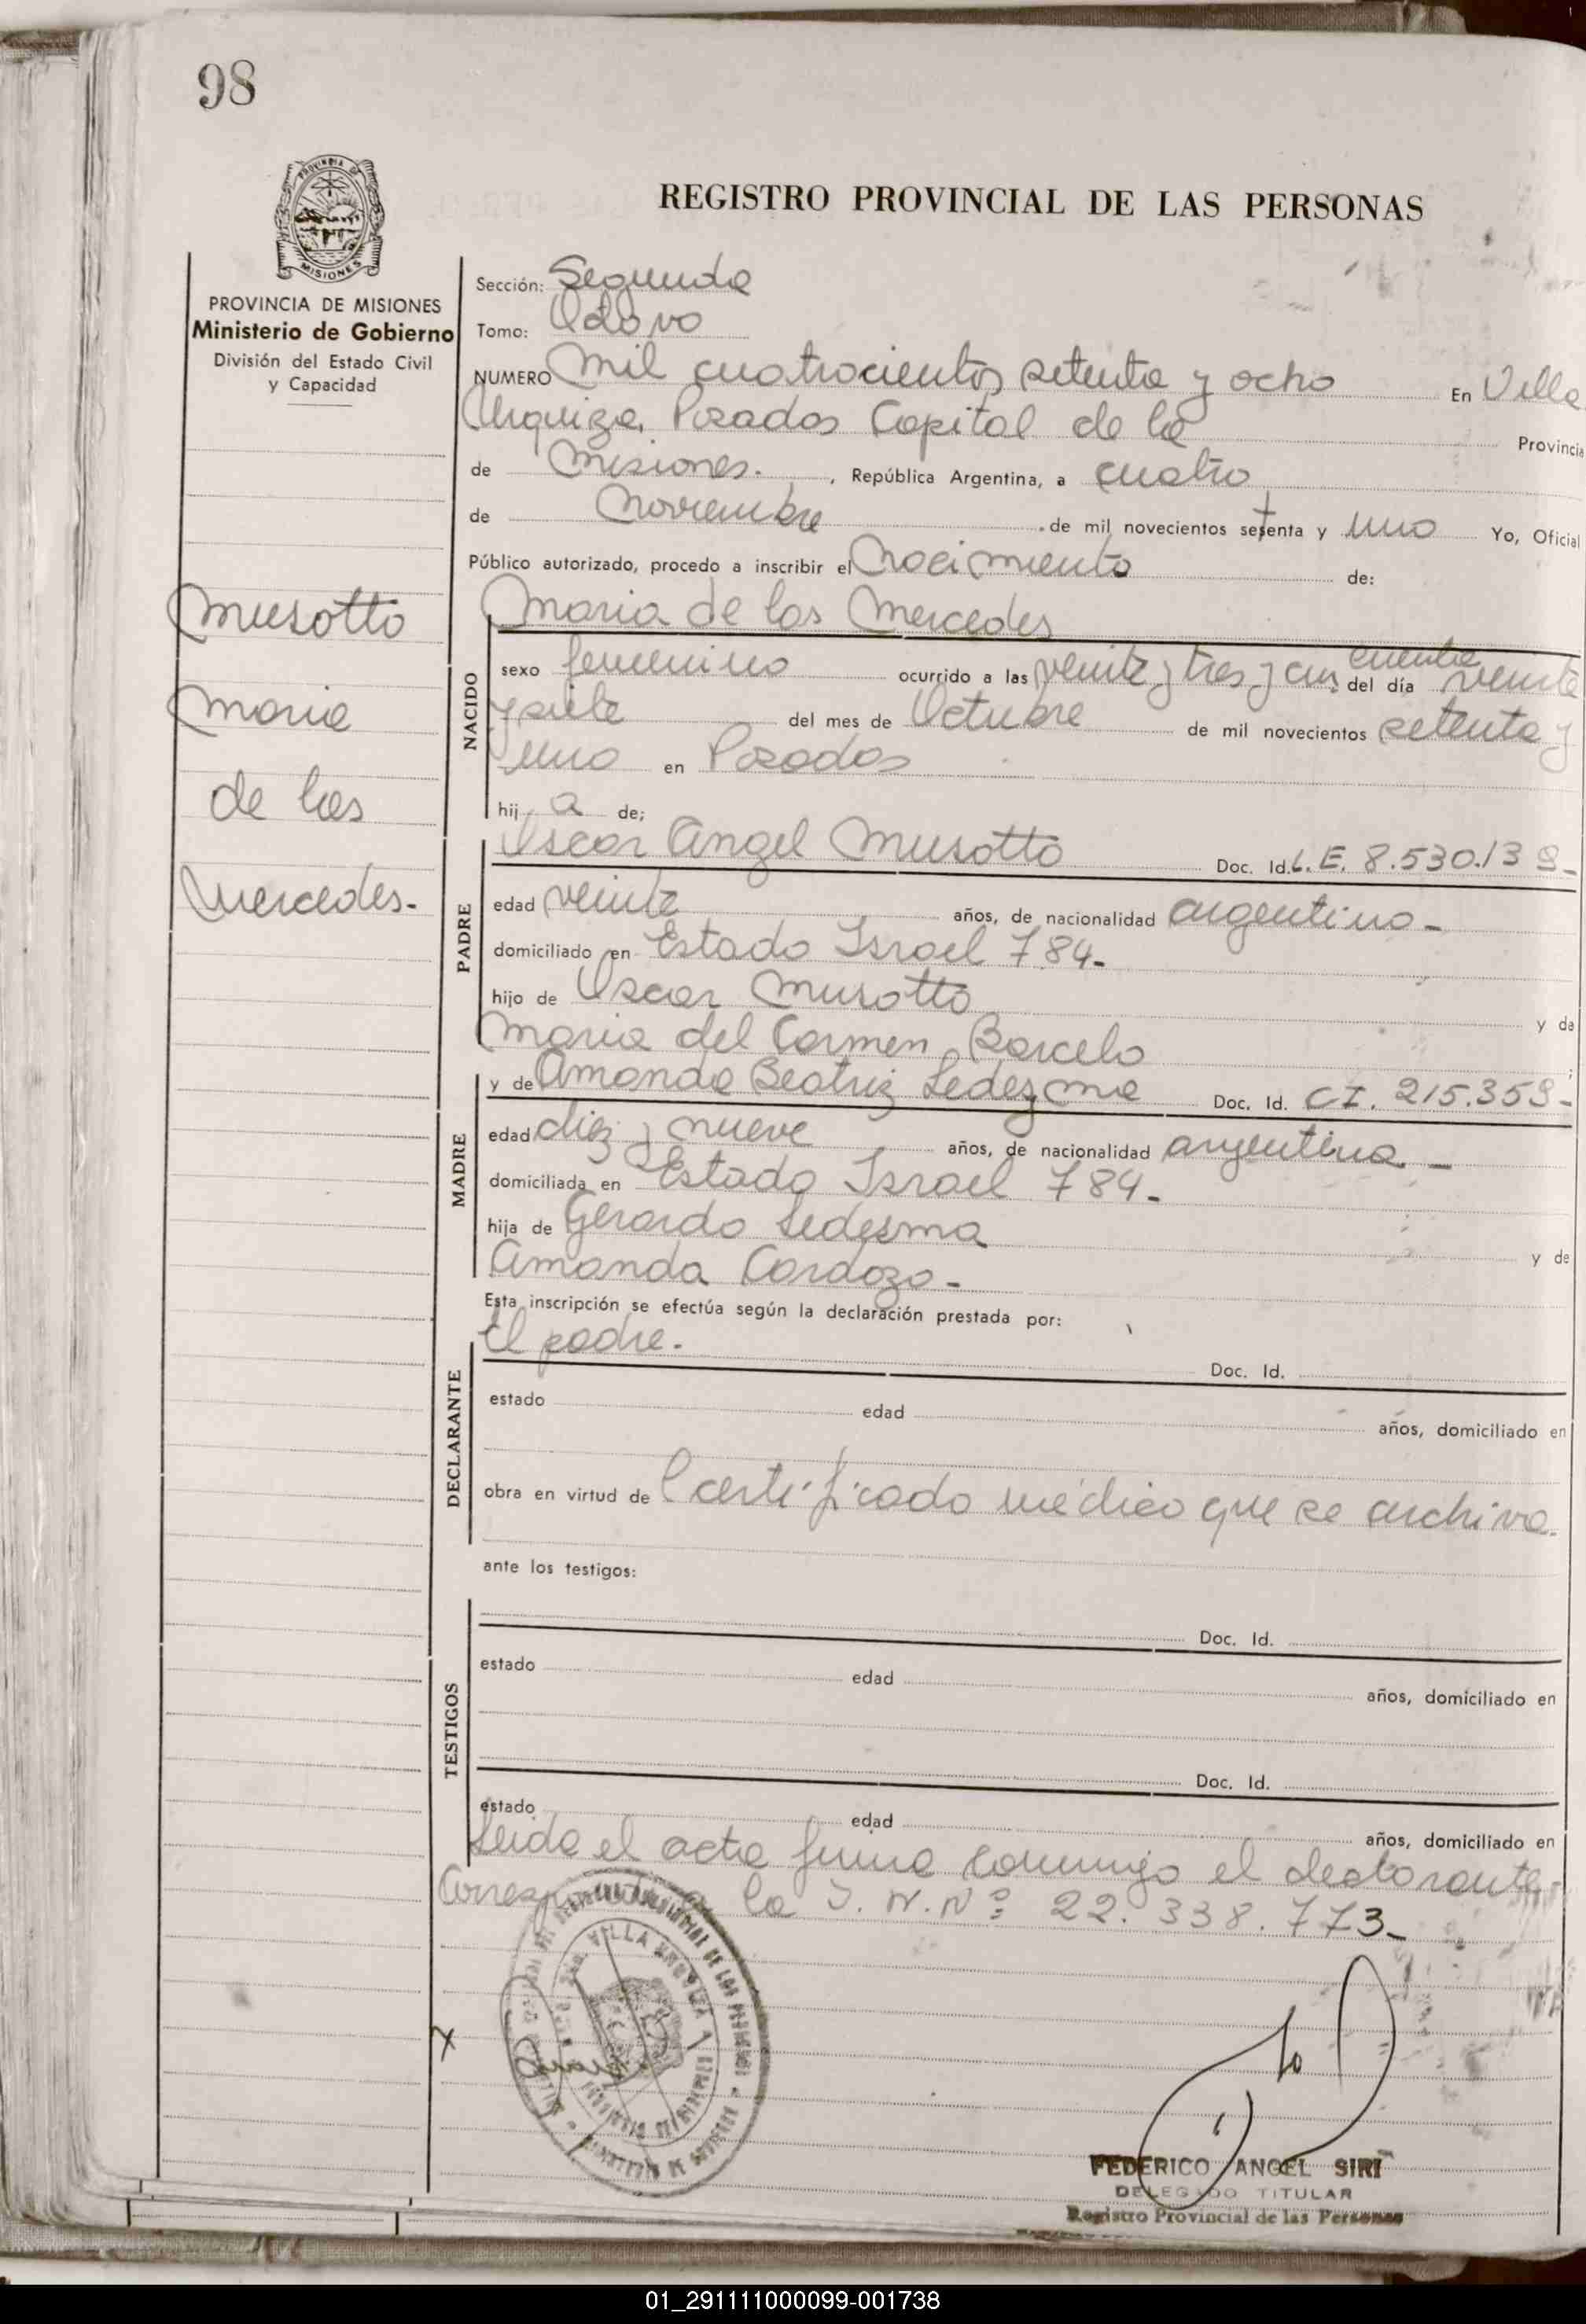 98
PROVINCIA DE
MISIONES
REGISTRO PROVINCIAL DE LAS PERSONAS
PROVINCIA DE MISIONES
Ministerio de Gobierno
División del Estado Civil
y Capacidad
Sección: Segunda
Tomo: Octavo
NUMERO Mil cuatrocientos setenta y ocho En Villa
Urquiza, Posadas Capital de la Provincia
de Misiones. , República Argentina, a cuatro
de Noviembre de mil novecientos setenta y uno Yo, Oficial
Público autorizado, procedo a inscribir el Nacimiento de:
Musotto
Maria
de las
Mercedes.-
NACIDO
Maria de las Mercedes
sexo femenino ocurrido a las veinte y tres y cin cuenta del día veinte
y siete del mes de Octubre de mil novecientos setenta y
uno en Posadas
hij a de;
PADRE
Oscar Angel Musotto Doc. Id. L.E. 8.530.139-
edad veinte años, de nacionalidad argentino-
domiciliado en Estado Israel 784-
hijo de Oscar Musotto y de
Maria del Carmen Barcelo
MADRE
y de Amanda Beatriz Ledezma Doc. Id. C.I. 215.359-
edad diez y nueve años, de nacionalidad argentina-
domiciliada en Estado Israel 784-
hija de Gerardo Ledesma y de
Amanda Cardozo-
Esta inscripción se efectúa según la declaración prestada por:
DECLARANTE
El padre. Doc. Id.
estado edad años, domiciliado en
obra en virtud de certificado médico que se archiva.
ante los testigos:
TESTIGOS
Doc. Id.
estado edad años, domiciliado en
Doc. Id.
estado edad años, domiciliado en
Leida el acta firma conmigo el declarante-
la I.N.Nº 22.338.773-
VILLA URQUIZA
FEDERICO ANGEL SIRI
DELEGADO TITULAR
Registro Provincial de las Personas
01_291111000099-001738